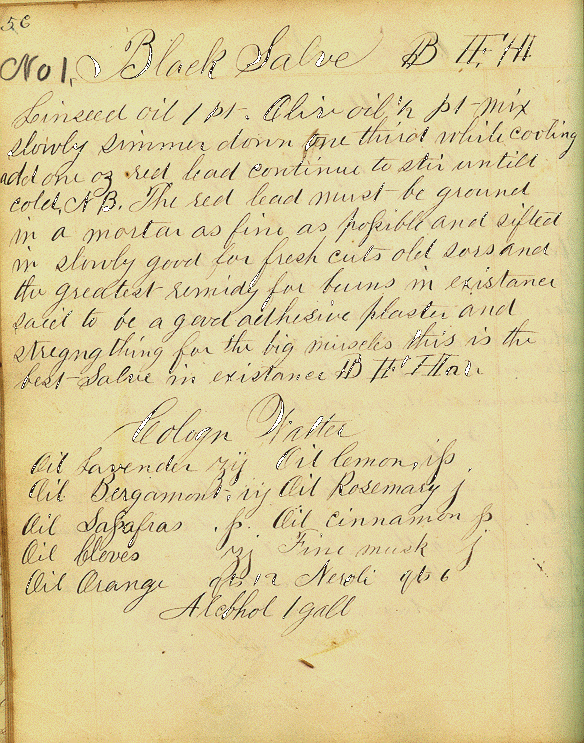 56
No 1, Black Salve B H H
Linseed oil 1 pt. Olive oil ½ pt mix
slowly simmer down one third while cooling
add one oz red lead continue to stir untill
cold, N B. The red lead must be ground
in a mortar as fine as possible and sifted
in slowly good for fresh cuts old sors and
the greatest remidy for burns in existance
said to be a good adhesive plaster and
stregngthing for the big muscles this is the
best Salve in existance B H
Cologn Watter
Oil Lavender ʒij Oil lemon
Oil Bergamont Oil Rosemary j
Oil Sasafras Oil cinnamon
Oil Cloves ʒj Fine musk j
Oil Orange gts 12 Neroli gts 6
Alcohol 1 gall